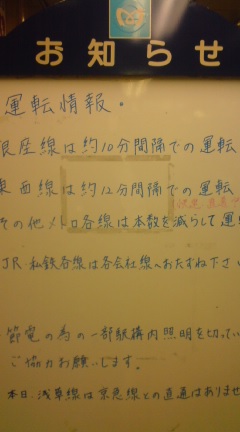 お知らせ
運転情報.
銀座線は約10分間隔での運転
東西線は約12分間隔での運転
その他メトロ各線は本数を減らして運
JR.私鉄各線は各会社線へおたずね下さい
節電の為の一部駅構内照明を切ってい
ご協力お願いします。
本日.浅草線は京急線との直通はありませ